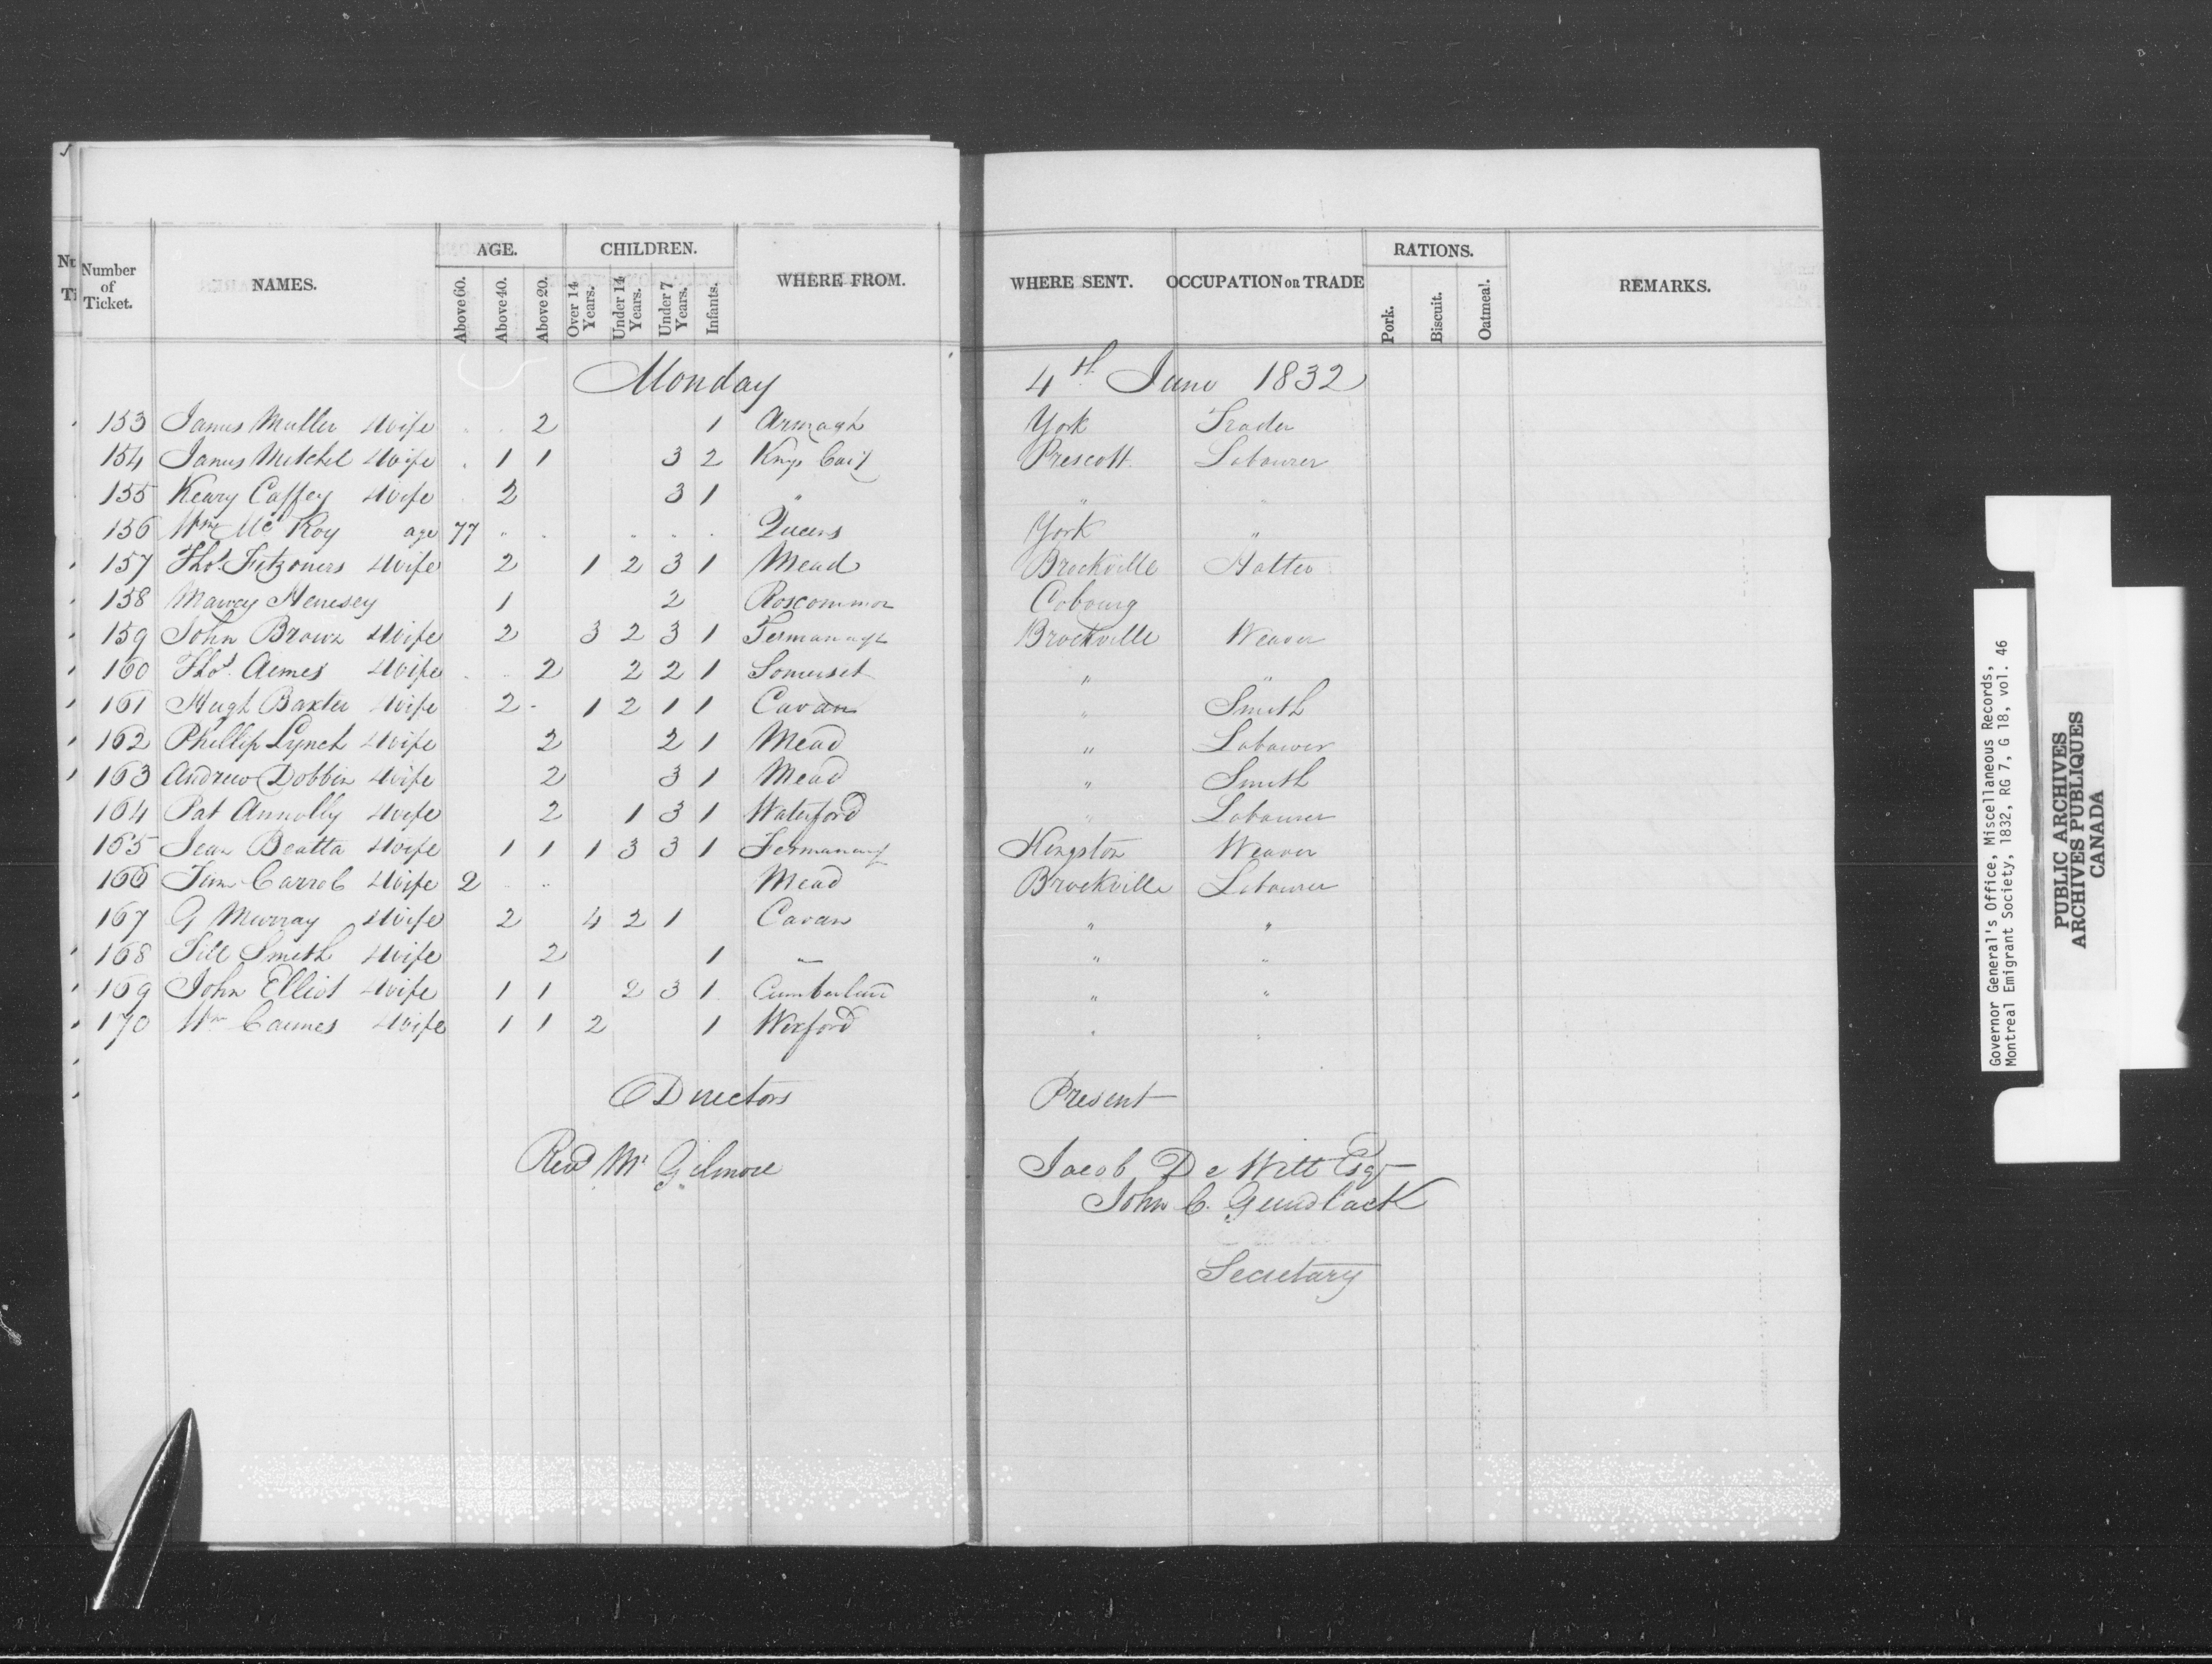 Number of Ticket. NAMES. AGE. Above 60. Above 40. Above 20. CHILDREN. Over 14 Years. Under 14 Years. Under 7 Years. Infants. WHERE FROM. WHERE SENT. OCCUPATION or TRADE RATIONS. Pork. Biscuit. Oatmeal. REMARKS.
Monday 4th June 1832
153 James Muller & Wife 2 1 Armagh York Trader
154 James Mitchel & Wife 1 1 3 2 Kings Prescott Labourer
155 Keary Caffey & Wife 2 3 1 " " "
156 Wm Mc Roy age 77 Queens York "
157 Thos. & Wife 2 1 2 3 1 Mead Brockville Hatter
158 Henesey 1 2 Roscommon Cobourg
159 John Brown & Wife 2 3 2 3 1 Fermanagh Brockville Weaver
160 Thos. & Wife 2 2 2 1 Somerset " "
161 Hugh Baxter & Wife 2 1 2 1 1 Cavan " Smith
162 Phillip Lynch & Wife 2 2 1 Mead " Labourer
163 Andrew Dobbin & Wife 2 3 1 Mead " Smith
164 Pat Annolly & Wife 2 1 3 1 Waterford " Labourer
165 Jean Beatta & Wife 1 1 1 3 3 1 Fermanagh Kingston Weaver
166 Carrol & Wife 2 Mead Brockville Labourer
167 G Murray & Wife 2 4 2 1 Cavan " "
168 Smith & Wife 2 1 " " "
169 John Elliot & Wife 1 1 2 3 1 Cumberland " "
170 Wm & Wife 1 1 2 1 Wexford " "
Directors Present
Revd Mr Gilmore Jacob De Witt Esqr
John C. Gundlack
Secretary
Governor General's Office, Miscellaneous Records,
Montreal Emigrant Society, 1832, RG 7, G 18, vol. 46
PUBLIC ARCHIVES
ARCHIVES PUBLIQUES
CANADA